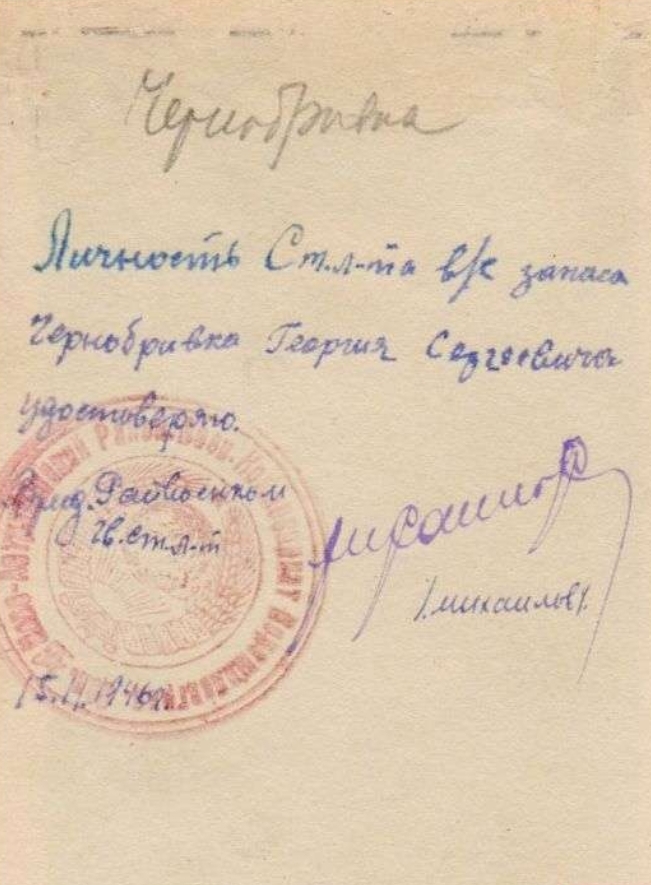 Чернобривка
Личность Ст. л-та в/к запаса
Чернобривка Георгия Сергеевича
удостоверяю.
Врид. Райвоенком
гв. ст. л-т
/Михайлов/.
1946г.